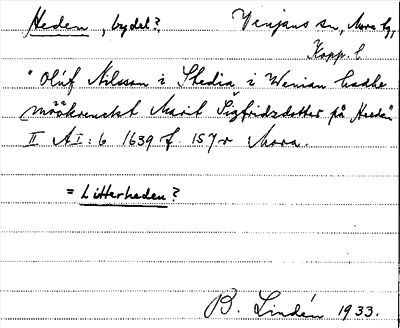 Heden, bydel? Venjans sn, Mora tg,
Kopp. l.
"Olúf Nilsson i Stedia i Wenian hadhe
möökrenckt Marit Sigfridzdotter på Heeden"
II AI:6 1639 f. 157r Mora.
= Litterheden?
B. Lindén 1933.